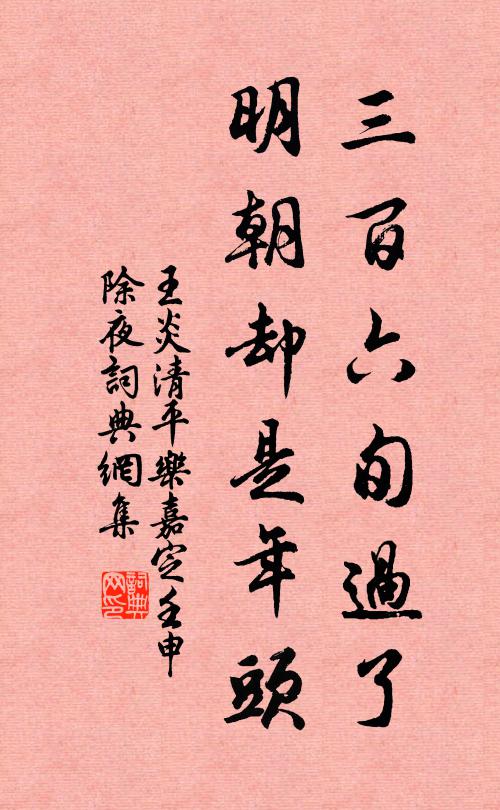 三百六旬過了
明朝却是年頭
王炎清平樂嘉定壬申
除夜詞典網集
詞典
网印